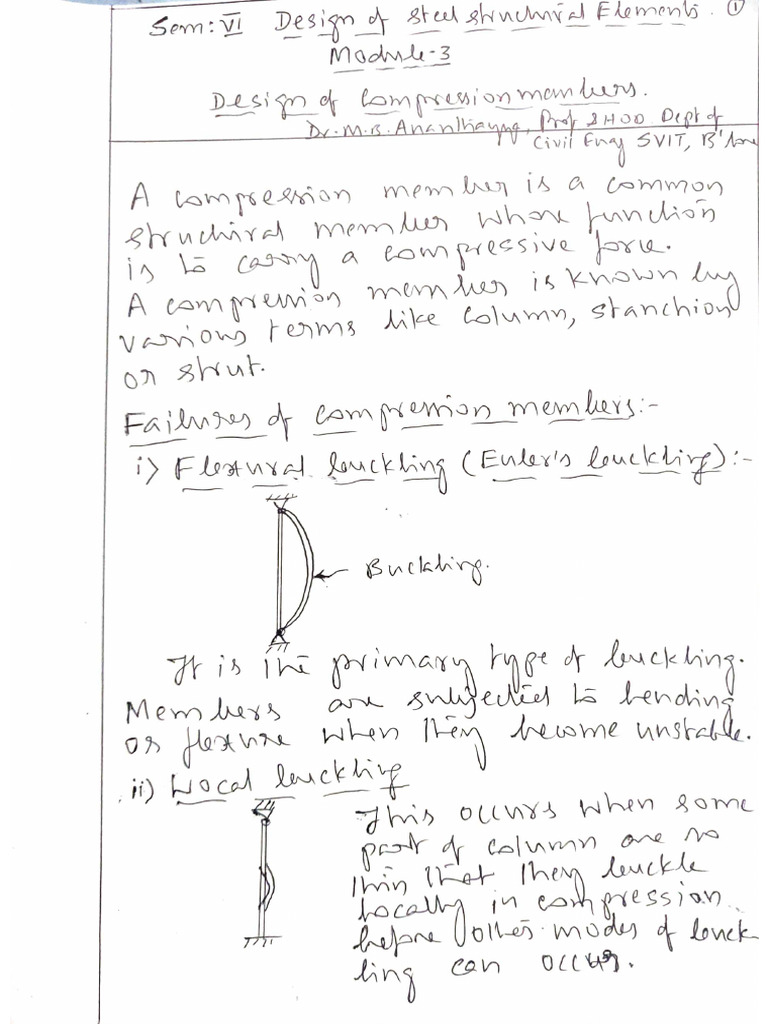 Sem: VI Design of Steel structural Elements. ①
Module-3
Design of Compression members.
Dr. M.B. Prof & HOD Dept of
Civil Engg SVIT, B'lore
A compression member is a common
structural member whose function
is to carry a compressive force.
A compression member is known by
various terms like column, stanchion
or strut.
Failures of compression members:-
i) Flexural buckling (Euler's buckling):-
Buckling.
It is the primary type of buckling.
Members are subjected to bending
or flexure when they become unstable.
ii) Local buckling
This occurs when some
part of column are so
thin that they buckle
locally in compression
before other modes of buck
ling can occur.